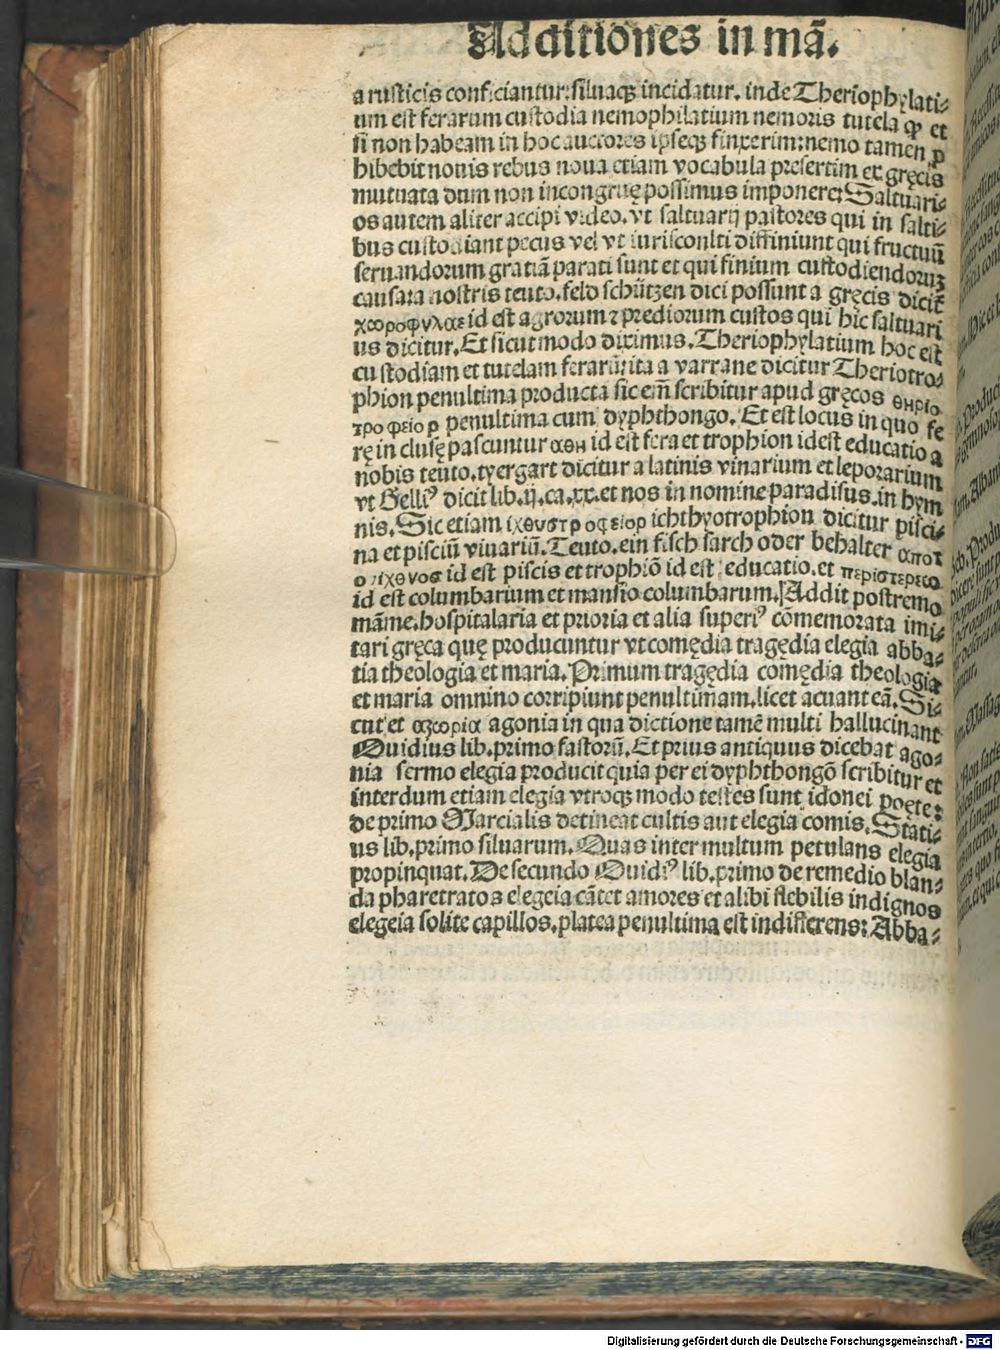 Additiones in mā.
a rusticis conficiantur: siluaqȝ incidatur. inde Theriophylati⸗
um est ferarum custodia nemophilatium nemoris tutela qꝫ et
si non habeam in hoc auctores ipseqȝ finxerim: nemo tamen ꝓ
hibebit nouis rebus noua etiam vocabula presertim ex gręcis
mutuata dum non incongruę possimus imponere; Saltuari⸗
os autem aliter accipi video. vt saltuarij pastores qui in salti⸗
bus custodiant pecus vel vt iurisconsti diffiniunt qui fructuū
seruandorum gratiā parati sunt et qui finium custodiendoruȝ
causa ra nostris teuto. feld schützen dici possunt a gręcis dicit̃
χωροφυλαξ id est agrorum ⁊ prediorum custos qui hic saltuari
us dicitur. Et sicut modo diximus. Theriophylatium hoc est
custodiam et tutelam ferarū: ita a varrane dicitur Theriotro⸗
phion penultima producta sic em̄ scribitur apud gręcos θηριο
τροφειον penultima cum dyphthongo. Et est locus in quo fe
rę in clusę pascuntur αθη id est fera et trophion id est educatio a
nobis teuto. tyergart dicitur a latinis vinarium et leporarium
vt Gelliꝰ dicit lib. ij. ca. xx. et nos in nomine paradisus. in hym
nis. Sic etiam ιχθυστροφειον ichthyotrophion dicitur pisci⸗
na et pisciū viuariū. Teuto. ein fisch sarch oder behalter αποτ
ο ιχθυος id est piscis et trophiō id est educatio. et περιστερεω
id est columbarium et mansio columbarum. Addit postremo
māme. hospitalaria et prioria et alia superiꝰ cōmemorata imi⸗
tari gręca quę producuntur vt comędia tragędia elegia abba⸗
tia theologia et maria. Primum tragędia comędia theologia
et maria omnino corripiunt penultimam. licet acuant eā. Si⸗
cut et αγωνια agonia in qua dictione tamē multi hallucinant
Ouidius lib. primo fastorū. Et prius antiquus dicebat ago⸗
nia sermo elegia producit quia per ei dyphthongō scribitur et
interdum etiam elegia vtroqȝ modo testes sunt idonei poete:
de primo Marcialis detineat cultis aut elegia comis. Stati⸗
us lib. primo siluarum. Quas inter multum petulans elegia
propinquat. De secundo Ouidiꝰ lib. primo de remedio blan⸗
da pharetratos elegeia cātet amores et alibi flebilis indignos
elegeia solite capillos. platea penultima est indifferens: Abba⸗
Digitalisierung gefördert durch die Deutsche Forschungsgemeinschaft - DFG